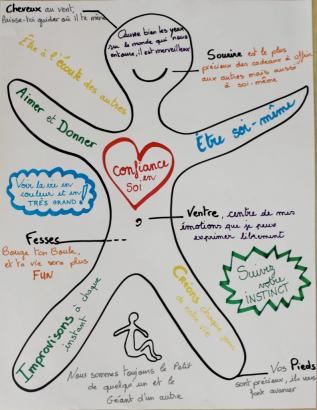 Cheveux au vent,
laisse-toi guider où il te mène
Ouvre bien les yeux
sur le monde qui nous
entoure, il est merveilleux
Sourire est le plus
précieux des cadeaux à offrir
aux autres mais aussi
à soi-même
Être à l'écoute des autres
Aimer et Donner
Être soi-même
Confiance
en
Soi
Voir la vie en
couleur et en
TRÈS GRAND!
Ventre, centre de mes
émotions que je peux
exprimer librement
Fesses
Bouge ton Boule,
et ta vie sera plus
FUN
Suivez
votre
INSTINCT
Improvisons à chaque
instant
Créons chaque jour
de notre vie
Nous sommes toujours le Petit
de quelqu'un et le
Géant d'un autre
Vos Pieds
sont précieux, ils vous
font avancer